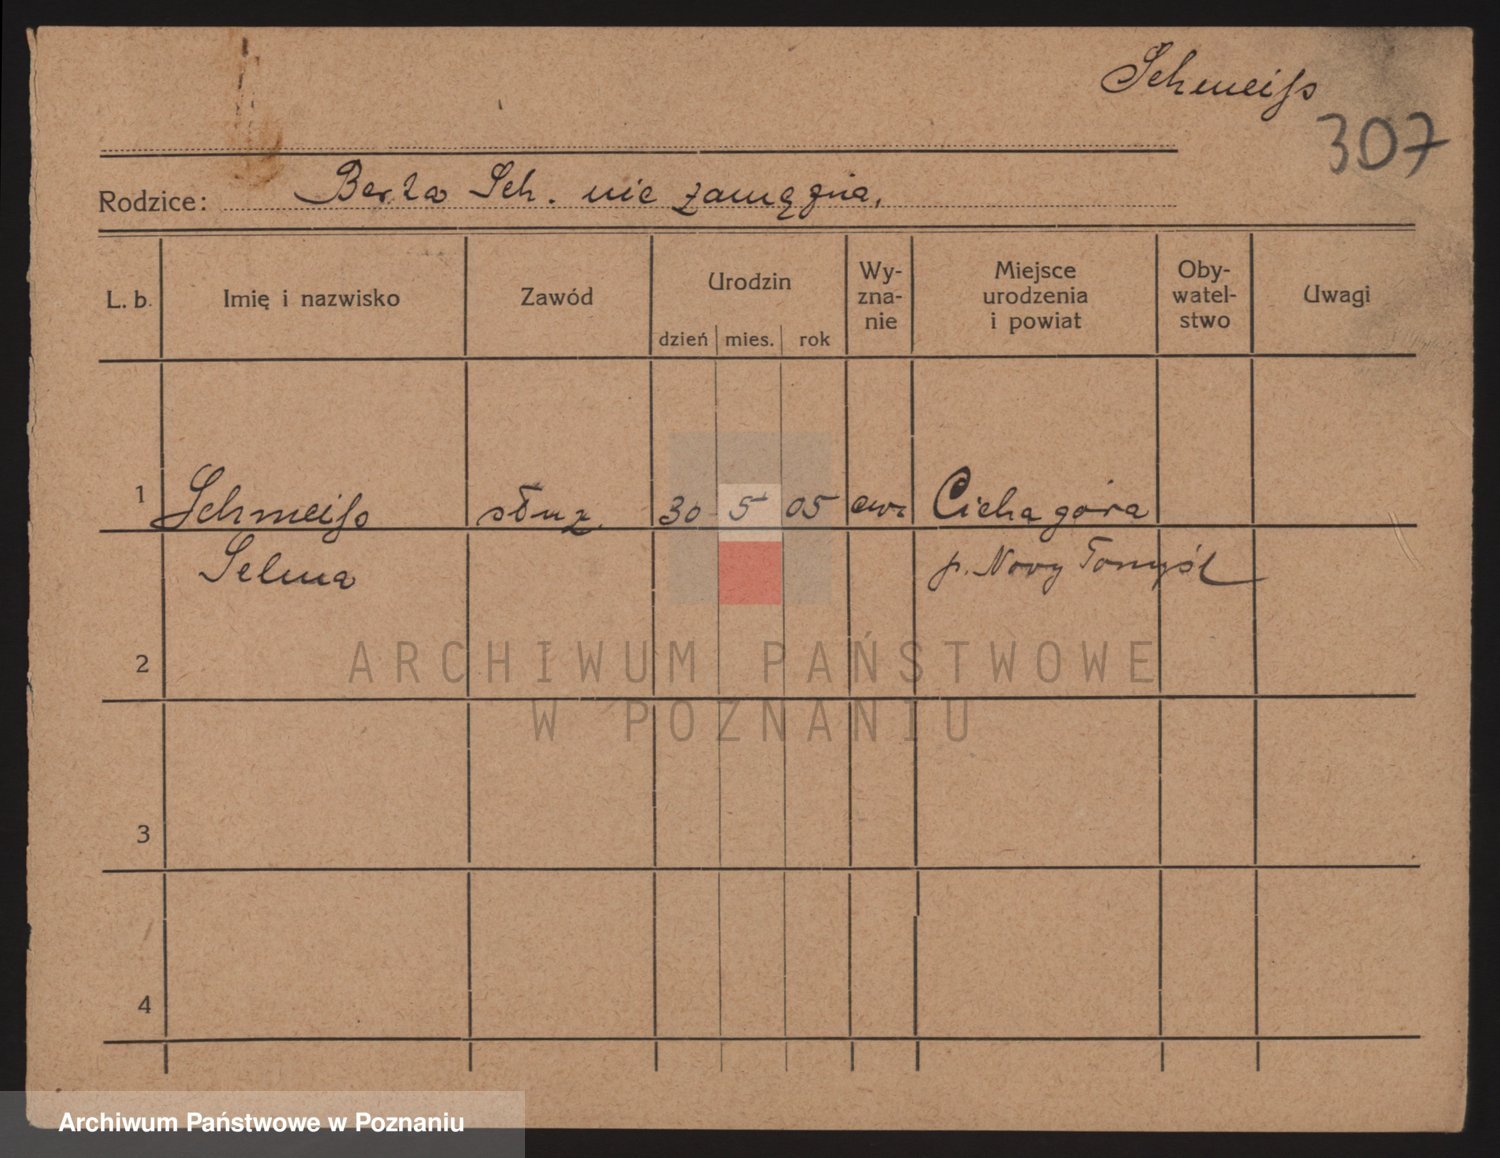 Schmeiſs
307
Rodzice: Berta Sch. nie zamężna,
L. b. Imię i nazwisko Zawód Urodzin Wy-zna-nie Miejsce urodzenia i powiat Oby-watel-stwo Uwagi
dzień mies. rok
1 Schmeiſs służ. 30 5 05 ew. Cicha góra
Selma p. Nowy Tomyśl
2
ARCHIWUM PAŃSTWOWE
W POZNANIU
3
4
Archiwum Państwowe w Poznaniu